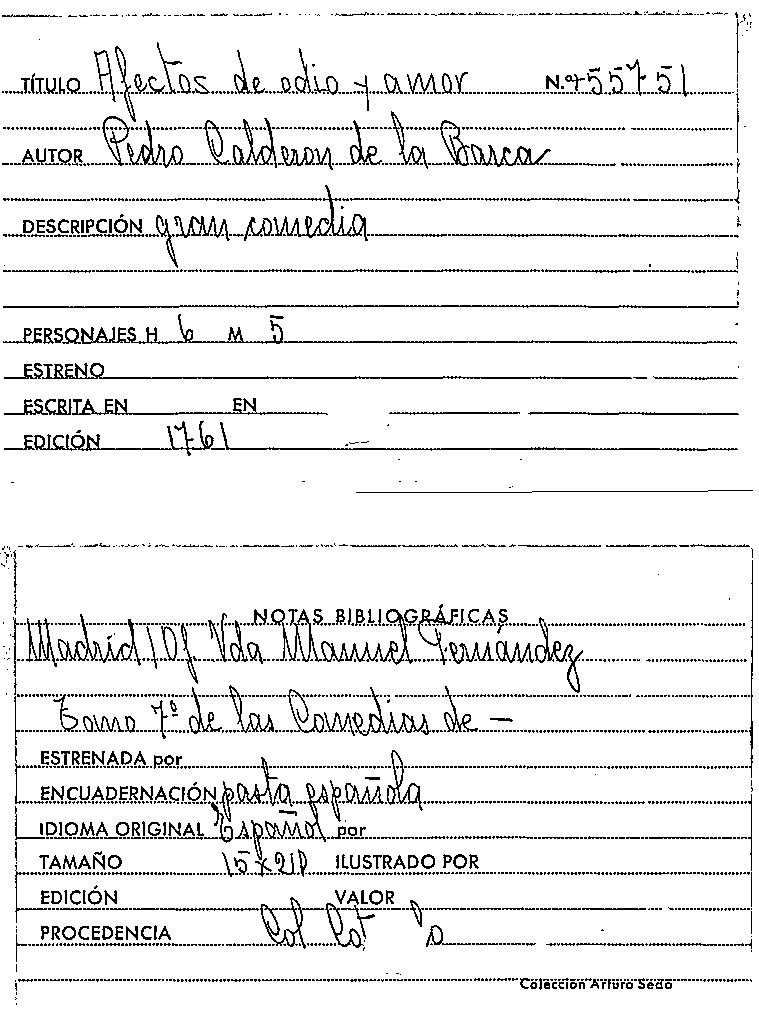 TÍTULO Afectos de odio y amor N.º 55751
AUTOR Pedro Calderon de la Barca
DESCRIPCIÓN gran comedia
PERSONAJES H 6 M 5
ESTRENO
ESCRITA EN EN
EDICIÓN 1761
NOTAS BIBLIOGRÁFICAS
Madrid / Of. Vda Manuel Fernández
Tomo 7º de las Comedias de —
ESTRENADA por
ENCUADERNACIÓN pasta española
IDIOMA ORIGINAL Español por
TAMAÑO 15x21 ILUSTRADO POR
EDICIÓN VALOR
PROCEDENCIA Col Cot
Colección Arturo Sedó